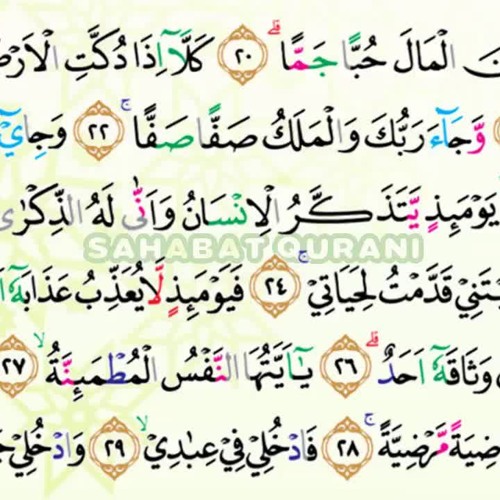 الْمَالَ حُبًّا جَمًّاۗ ٢٠ كَلَّآ اِذَا دُكَّتِ الْاَرْضُ
وَّجَآءَ رَبُّكَ وَالْمَلَكُ صَفًّا صَفًّاۚ ٢٢ وَجِايْۤءَ
يَوْمَىِٕذٍ يَّتَذَكَّرُ الْاِنْسَانُ وَاَنّٰى لَهُ الذِّكْرٰى
SAHABAT QURANI
قَدَّمْتُ لِحَيَاتِيْۚ ٢٤ فَيَوْمَىِٕذٍ لَّا يُعَذِّبُ عَذَابَهٗٓ
وَثَاقَهٗٓ اَحَدٌۗ ٢٦ يٰٓاَيَّتُهَا النَّفْسُ الْمُطْمَىِٕنَّةُۙ ٢٧
مَّرْضِيَّةًۚ ٢٨ فَادْخُلِيْ فِيْ عِبٰدِيْۙ ٢٩ وَادْخُلِيْ